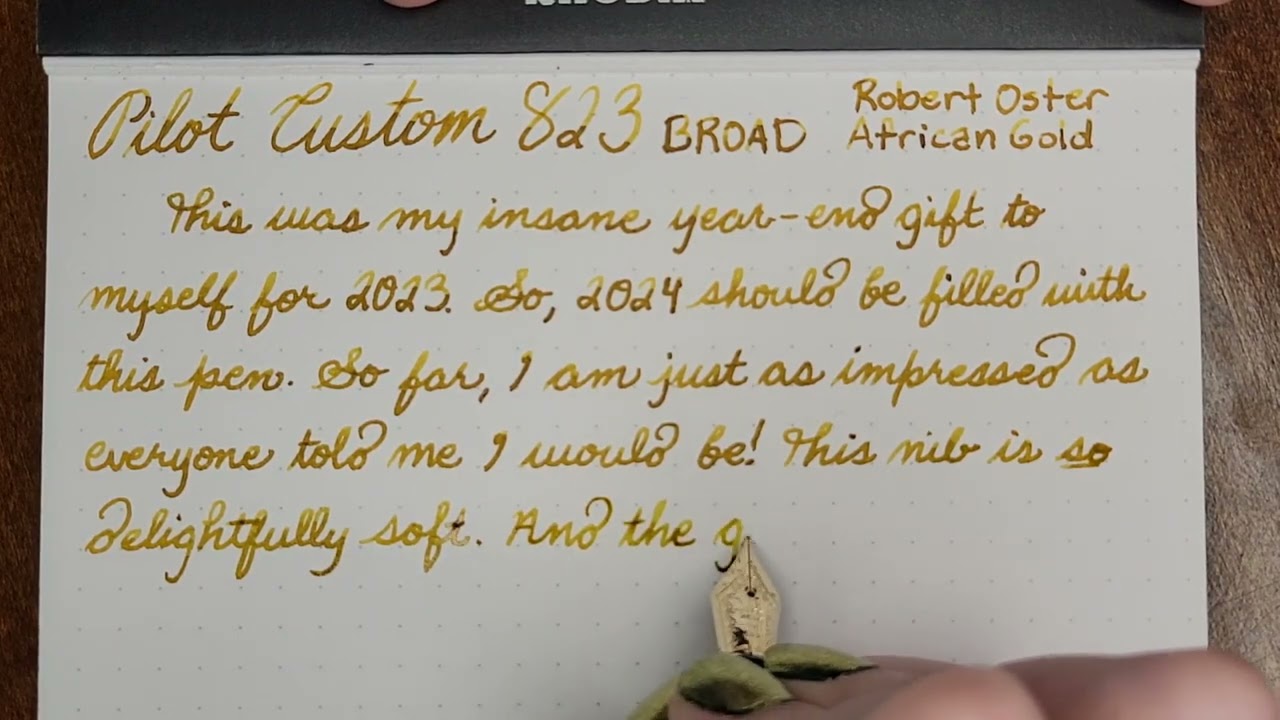 Pilot Custom 823 BROAD
Robert Oster
African Gold
This was my insane year-end gift to
myself for 2023. So, 2024 should be filled with
this pen. So far, I am just as impressed as
everyone told me I would be! This nib is so
delightfully soft. And the g